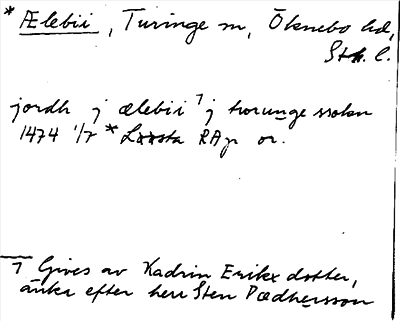 * Ælebii, Turinge sn, Öknebo hd,
Sth. l.
jordh j ælebii ⁊ j torunge sokn
1474 1/7 * Lxxsta RAp or.
⁊ Gives av Kadrin Eriksdotter,
änka efter herr Sten Pædhersson